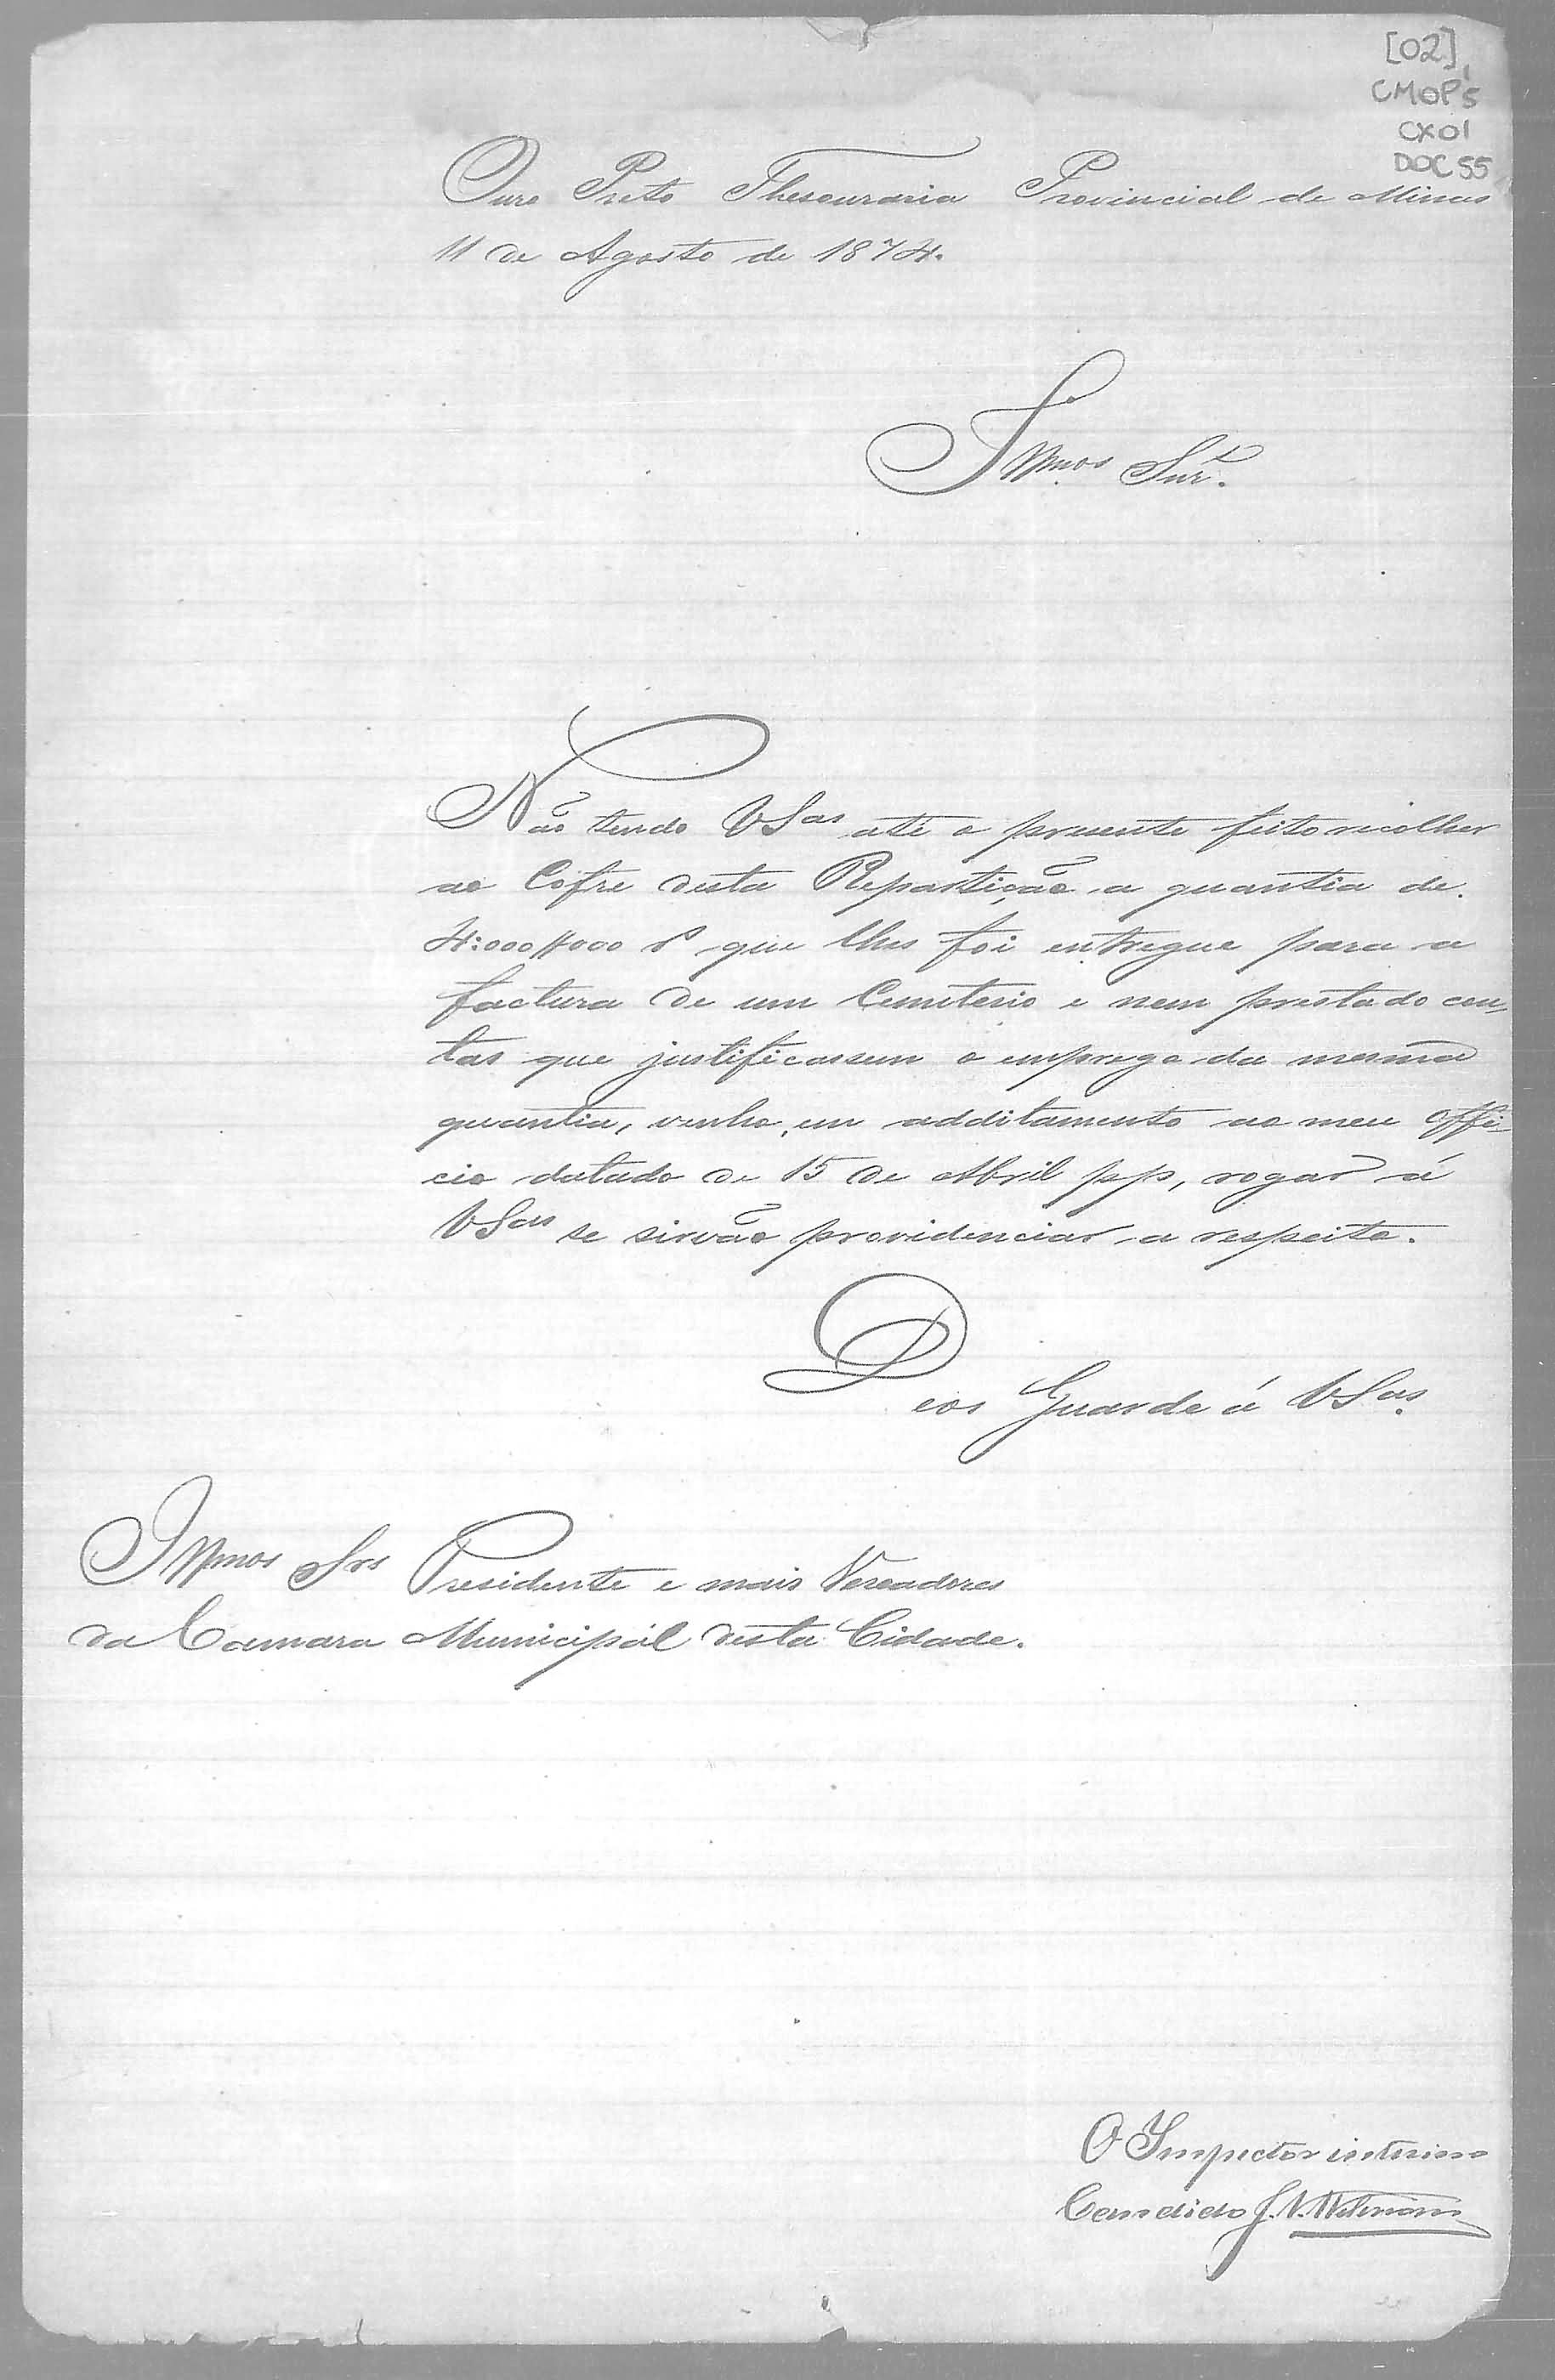 [02]
CMOP 5
CX01
DOC 55
Ouro Preto Thesouraria Provincial de Minas
11 de Agosto de 1874.
Illmos Snrs.
Não tendo VSas até o presente feito recolher
ao Cofre desta Repartição a quantia de
4:000#000 rs que lhes foi entregue para a
factura de um Cemiterio e nem prestado con-
tas que justificassem o emprego da mesma
quantia, venho, em additamento ao meu offi-
cio datado de 15 de Abril pp, rogar á
VSas se sirvão providenciar a respeito.
Deos Guarde á VSas.
Illmos Srs Presidente e mais Vereadores
da Camara Municipal desta Cidade.
O Inspector interino
Candido J. V.